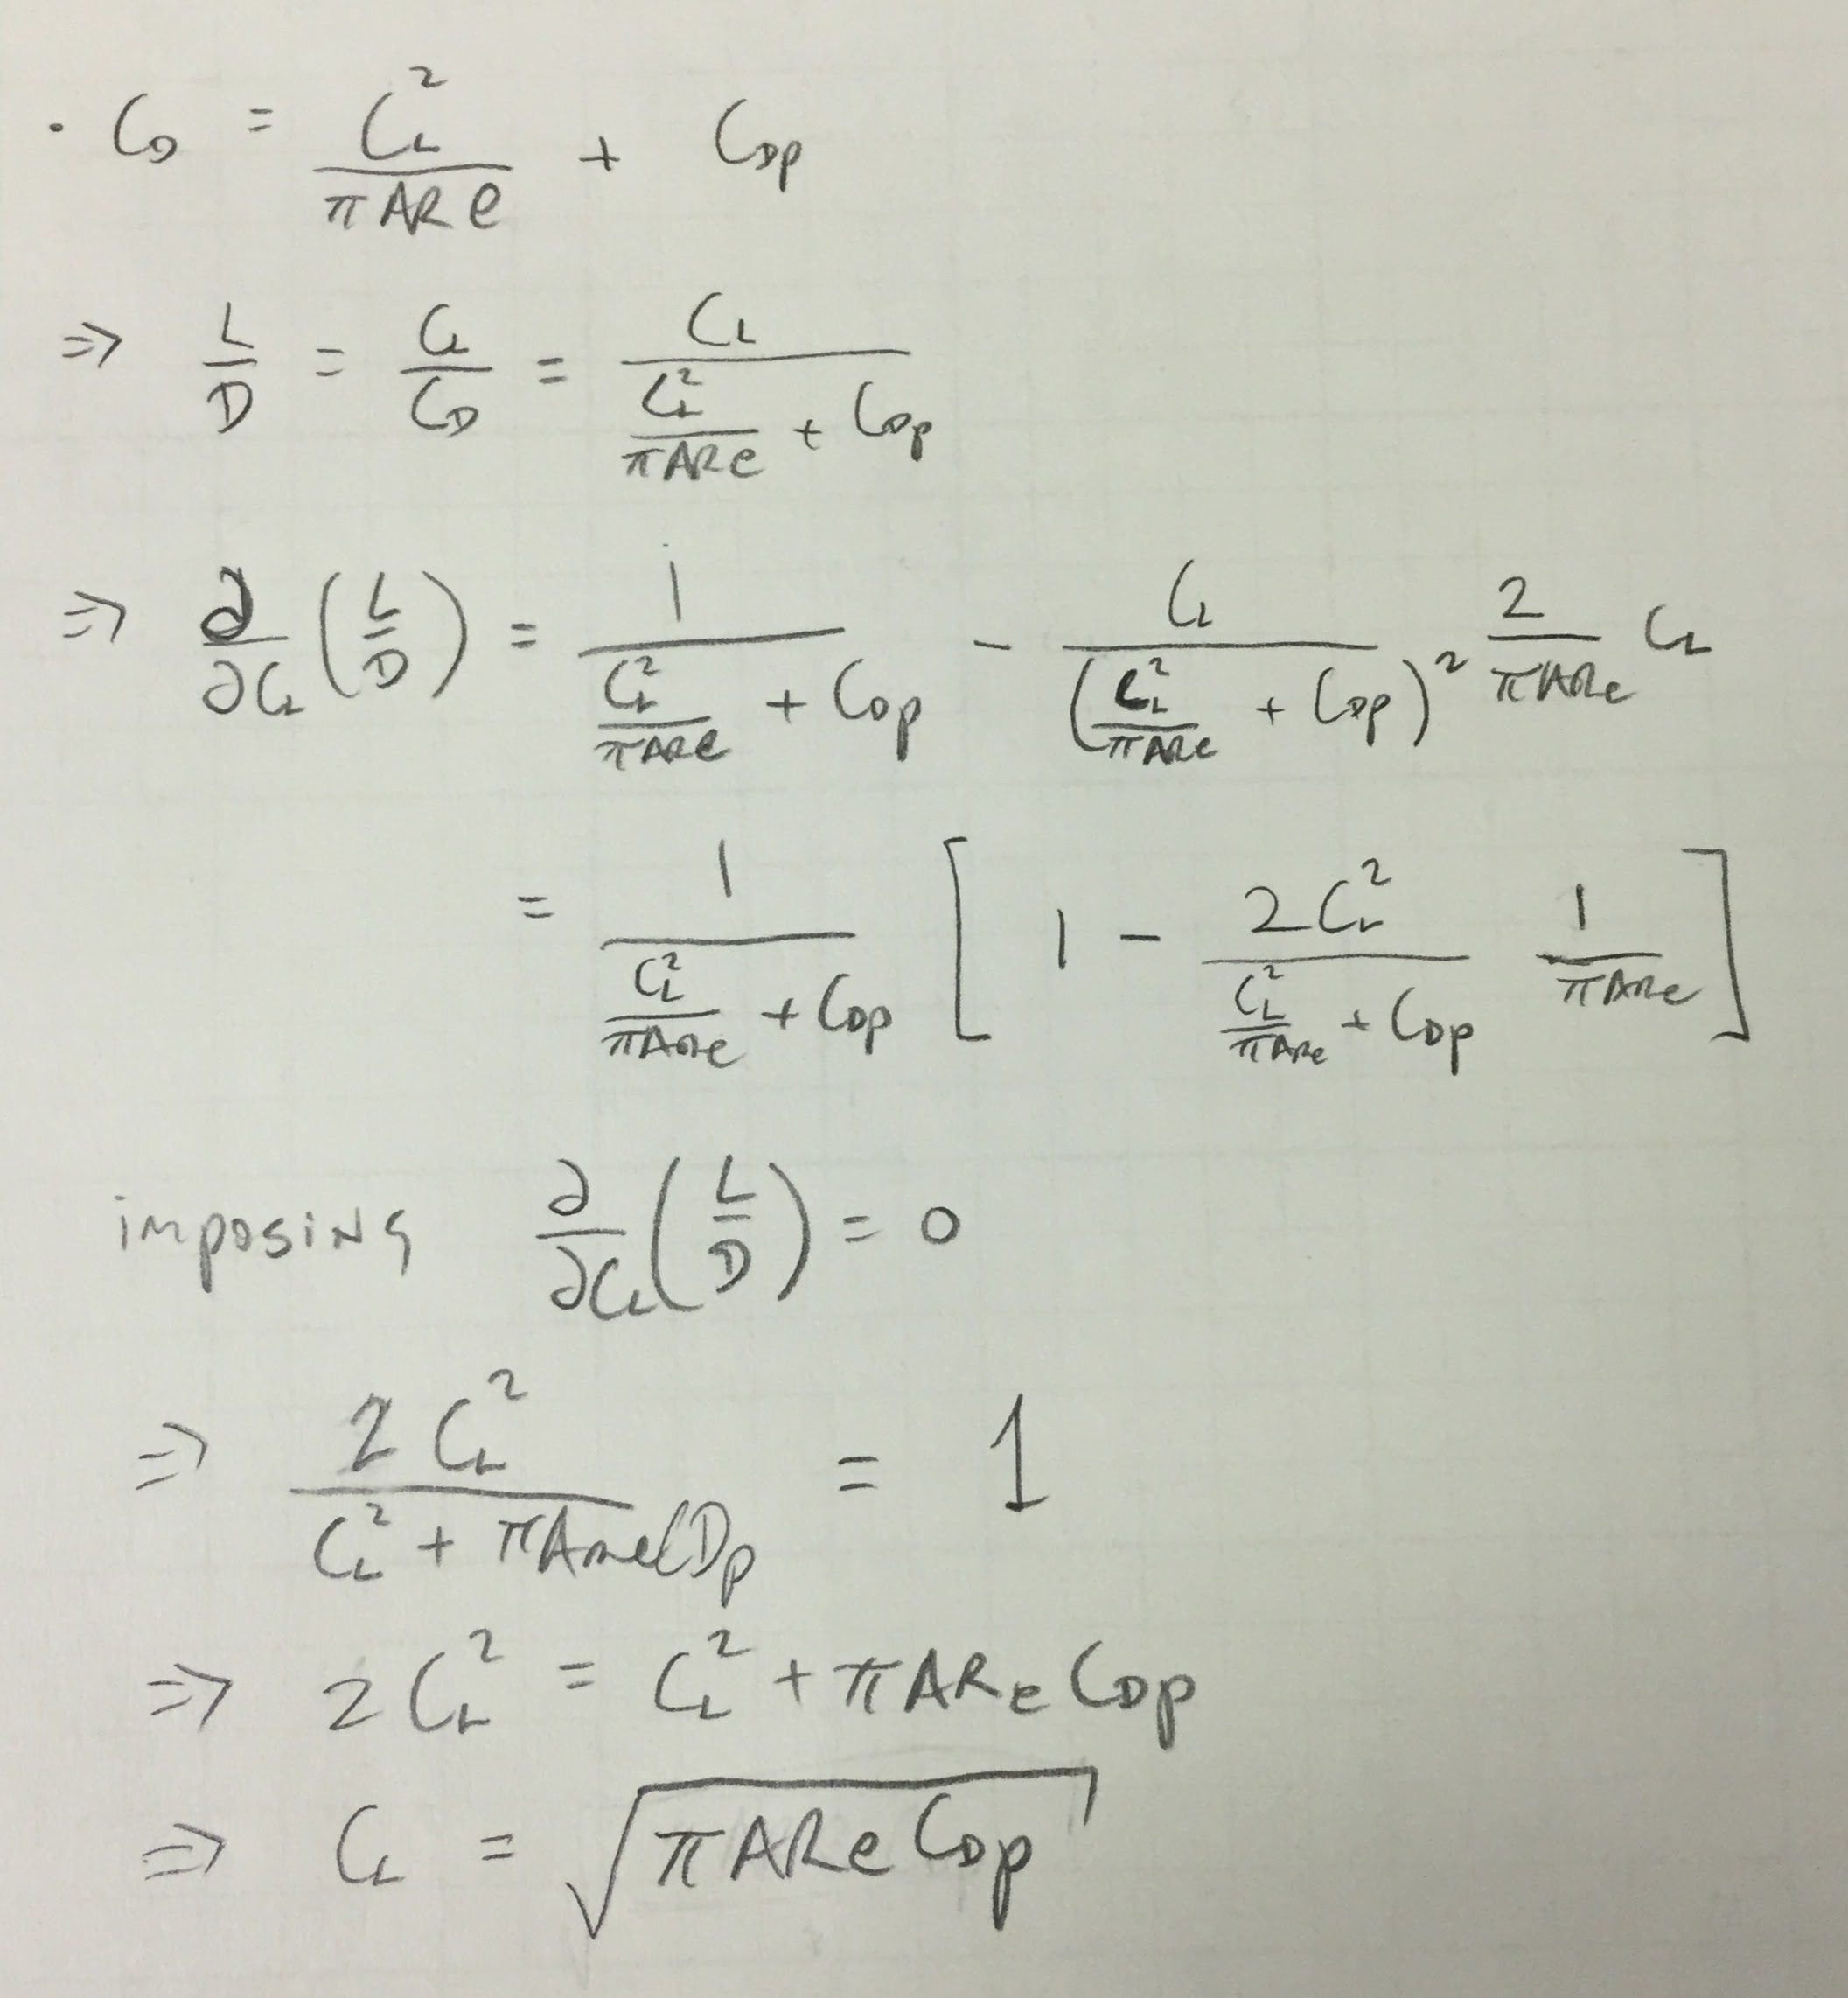 · C_D = C_L² / (π AR e) + C_Dp
⇒ L/D = C_L/C_D = C_L / (C_L²/(π AR e) + C_Dp)
⇒ ∂/∂C_L (L/D) = 1 / (C_L²/(π AR e) + C_Dp) − C_L / (C_L²/(π AR e) + C_Dp)² 2/(π AR e) C_L
= 1 / (C_L²/(π AR e) + C_Dp) [1 − 2C_L² / (C_L²/(π AR e) + C_Dp) 1/(π AR e)]
imposing ∂/∂C_L (L/D) = 0
⇒ 2C_L² / (C_L² + π AR e C_Dp) = 1
⇒ 2C_L² = C_L² + π AR e C_Dp
⇒ C_L = √(π AR e C_Dp)